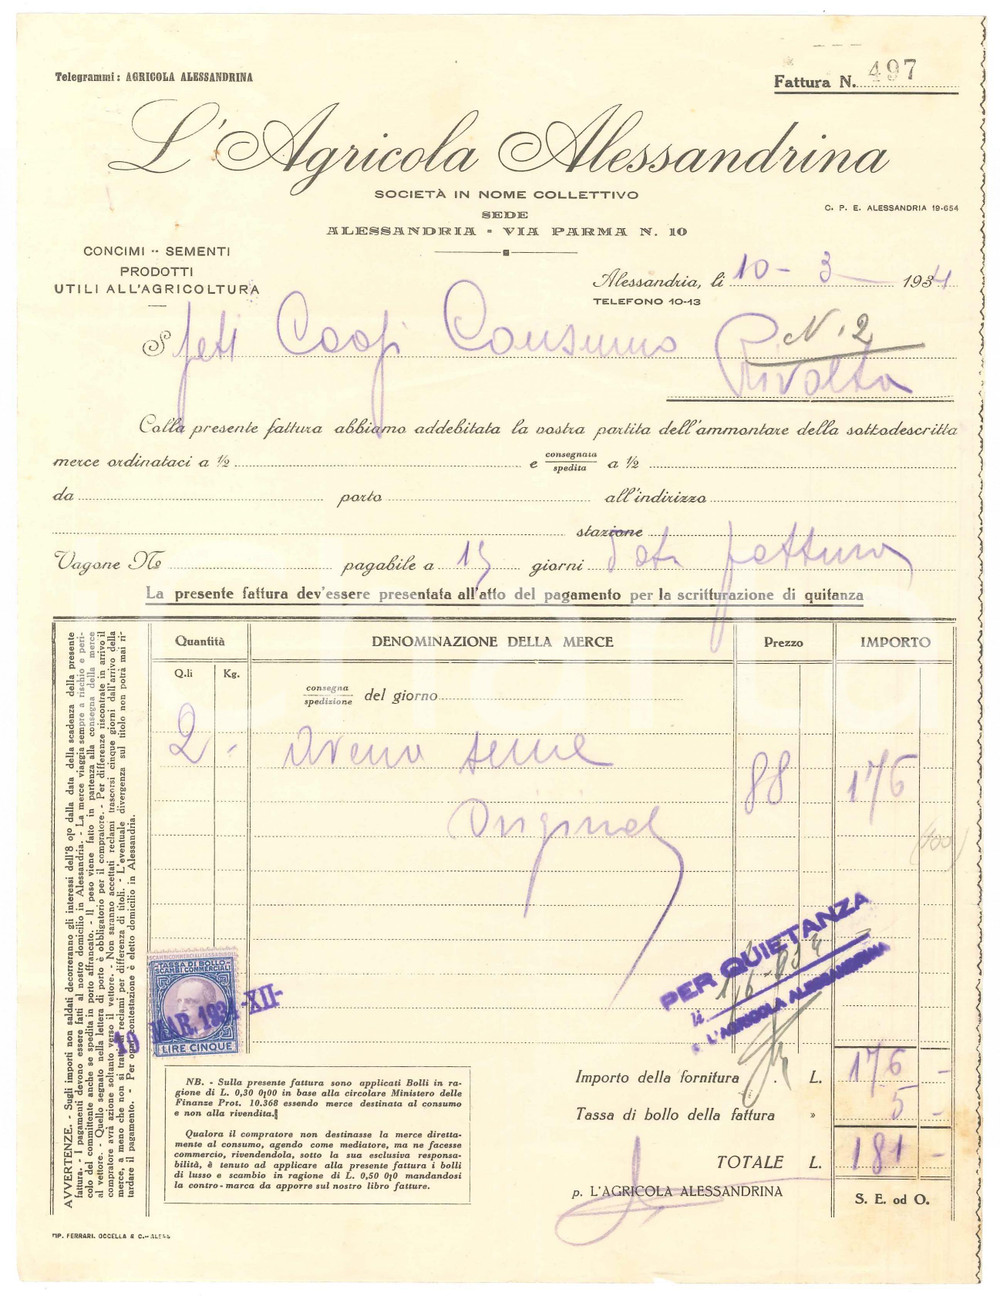 Telegrammi: AGRICOLA ALESSANDRINA
Fattura N. 497
L'Agricola Alessandrina
SOCIETÀ IN NOME COLLETTIVO
C. P. E. ALESSANDRIA 19-654
SEDE
ALESSANDRIA - VIA PARMA N. 10
CONCIMI -- SEMENTI
PRODOTTI
UTILI ALL'AGRICOLTURA
Alessandria, li 10 - 3 1934
TELEFONO 10-13
S Coop Consumo N. 2
Rivolta
Colla presente fattura abbiamo addebitata la vostra partita dell'ammontare della sottodescritta
merce ordinataci a ½ e consegnata spedita a ½
da porto all'indirizzo
stazione
Vagone N° pagabile a 15 giorni data fattura
La presente fattura dev'essere presentata all'atto del pagamento per la scritturazione di quitanza
Quantità DENOMINAZIONE DELLA MERCE Prezzo IMPORTO
Q.li Kg.
consegna spedizione del giorno
2 - avena seme 88 176
Original
(100)
PER QUIETANZA
li
L'AGRICOLA ALESSANDRINA
TASSA DI BOLLO
SCAMBI COMMERCIALI
19 MAR. 1934 -XII-
LIRE CINQUE
AVVERTENZE. - Sugli importi non saldati decorreranno gli interessi dell'8 0|0 dalla data della scadenza della presente
fattura. - I pagamenti devono essere fatti al nostro domicilio in Alessandria. - La merce viaggia sempre a rischio e peri-
colo del committente anche se spedita in porto affrancato. - Il peso viene fatto in partenza alla consegna della merce
al vettore. - Quello segnato nella lettera di porto è obbligatorio per il compratore. - Per differenze riscontrate in arrivo il
compratore avrà azione soltanto verso il vettore. - Non saranno accettati reclami trascorsi cinque giorni dall'arrivo della
merce, a meno che non si tratti di reclami per differenza di titoli. - L'eventuale divergenza sul titolo non potrà mai ri-
tardare il pagamento. - Per ogni contestazione è eletto domicilio in Alessandria.
NB. - Sulla presente fattura sono applicati Bolli in ra-
gione di L. 0,30 0|00 in base alla circolare Ministero delle
Finanze Prot. 10.368 essendo merce destinata al consumo
e non alla rivendita.
Qualora il compratore non destinasse la merce diretta-
mente al consumo, agendo come mediatore, ma ne facesse
commercio, rivendendola, sotto la sua esclusiva responsa-
bilità, è tenuto ad applicare alla presente fattura i bolli
di lusso e scambio in ragione di L. 0,50 0|0 mandandosi
la contro-marca da apporre sul nostro libro fatture.
Importo della fornitura L. 176 -
Tassa di bollo della fattura » 5 -
TOTALE L. 181 -
p. L'AGRICOLA ALESSANDRINA
S. E. od O.
TIP. FERRARI, OCCELLA & C. - ALESS.